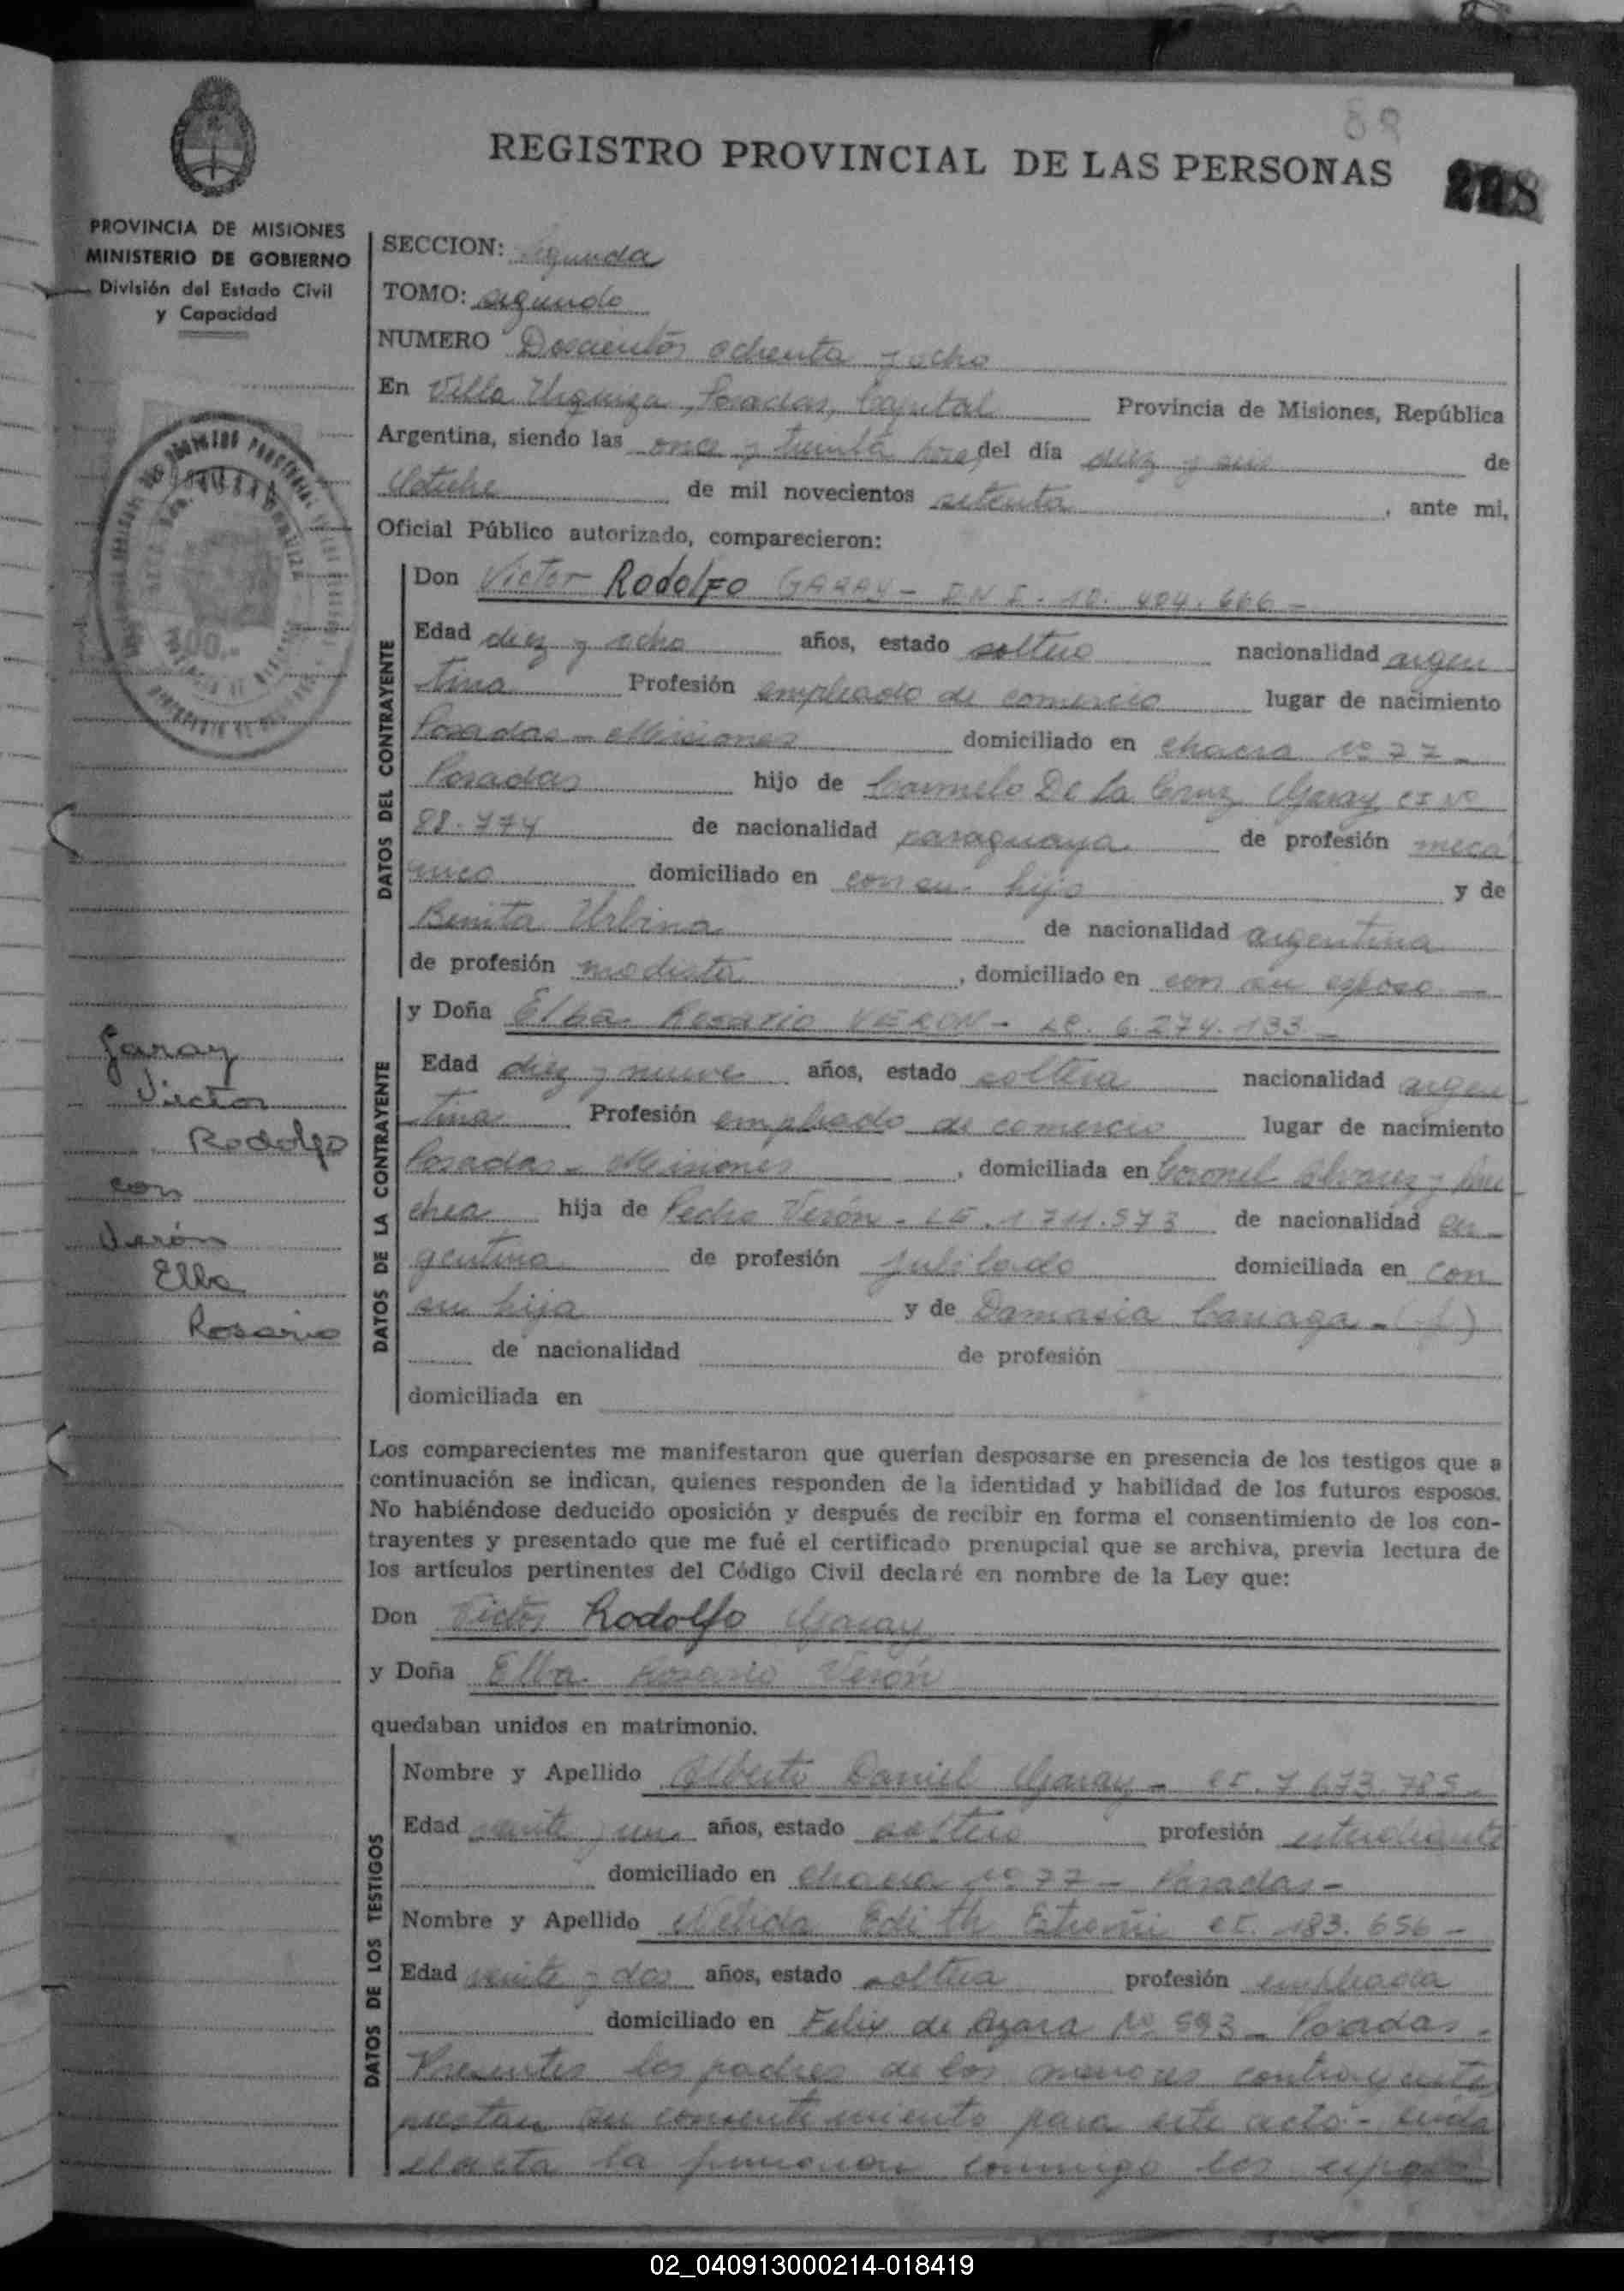 89
REGISTRO PROVINCIAL DE LAS PERSONAS
PROVINCIA DE MISIONES
MINISTERIO DE GOBIERNO
División del Estado Civil
y Capacidad
SECCION: Segunda
TOMO: segundo
NUMERO Doscientos ochenta y ocho
En Villa Urquiza, Posadas, Capital Provincia de Misiones, República
Argentina, siendo las once y treinta horas del día diez y seis de
Octubre de mil novecientos setenta, ante mi,
Oficial Público autorizado, comparecieron:
DATOS DEL CONTRAYENTE
Don Victor Rodolfo GARAY - 10.404.666 -
Edad diez y ocho años, estado soltero nacionalidad argen
tina Profesión empleado de comercio lugar de nacimiento
Posadas - Misiones domiciliado en chacra Nº 77 -
Posadas hijo de Carmelo De La Cruz Garay CI Nº
88.774 de nacionalidad paraguaya de profesión mecá
nico domiciliado en con su hijo y de
Benita Urbina de nacionalidad argentina
de profesión modista, domiciliado en con su esposo -
DATOS DE LA CONTRAYENTE
y Doña Elba Rosario VERON - LC. 6.274.133 -
Edad diez y nueve años, estado soltera nacionalidad argen
tina Profesión empleado de comercio lugar de nacimiento
Posadas - Misiones, domiciliada en Coronel Alvarez y
chea hija de Pedro Verón - LE. 1711.573 de nacionalidad ar
gentina de profesión jubilado domiciliada en con
su hija y de Damasia Cariaga -
de nacionalidad de profesión
domiciliada en
Garay
Victor
Rodolfo
con
Verón
Elba
Rosario
Los comparecientes me manifestaron que querían desposarse en presencia de los testigos que a
continuación se indican, quienes responden de la identidad y habilidad de los futuros esposos.
No habiéndose deducido oposición y después de recibir en forma el consentimiento de los con-
trayentes y presentado que me fué el certificado prenupcial que se archiva, previa lectura de
los artículos pertinentes del Código Civil declaré en nombre de la Ley que:
Don Victor Rodolfo Garay
y Doña Elba Rosario Verón
quedaban unidos en matrimonio.
DATOS DE LOS TESTIGOS
Nombre y Apellido Alberto Daniel Garay - 7.673.785 -
Edad veinte y un años, estado soltero profesión estudiante
domiciliado en chacra Nº 77 - Posadas -
Nombre y Apellido Nelida Edith CI. 183.656 -
Edad veinte y dos años, estado soltera profesión empleada
domiciliado en Felix de Azara Nº 593 - Posadas -
Presentes los padres de los menores contrayentes
prestan su consentimiento para este acto -
el acta la firmaron conmigo los esposos
02_040913000214-018419